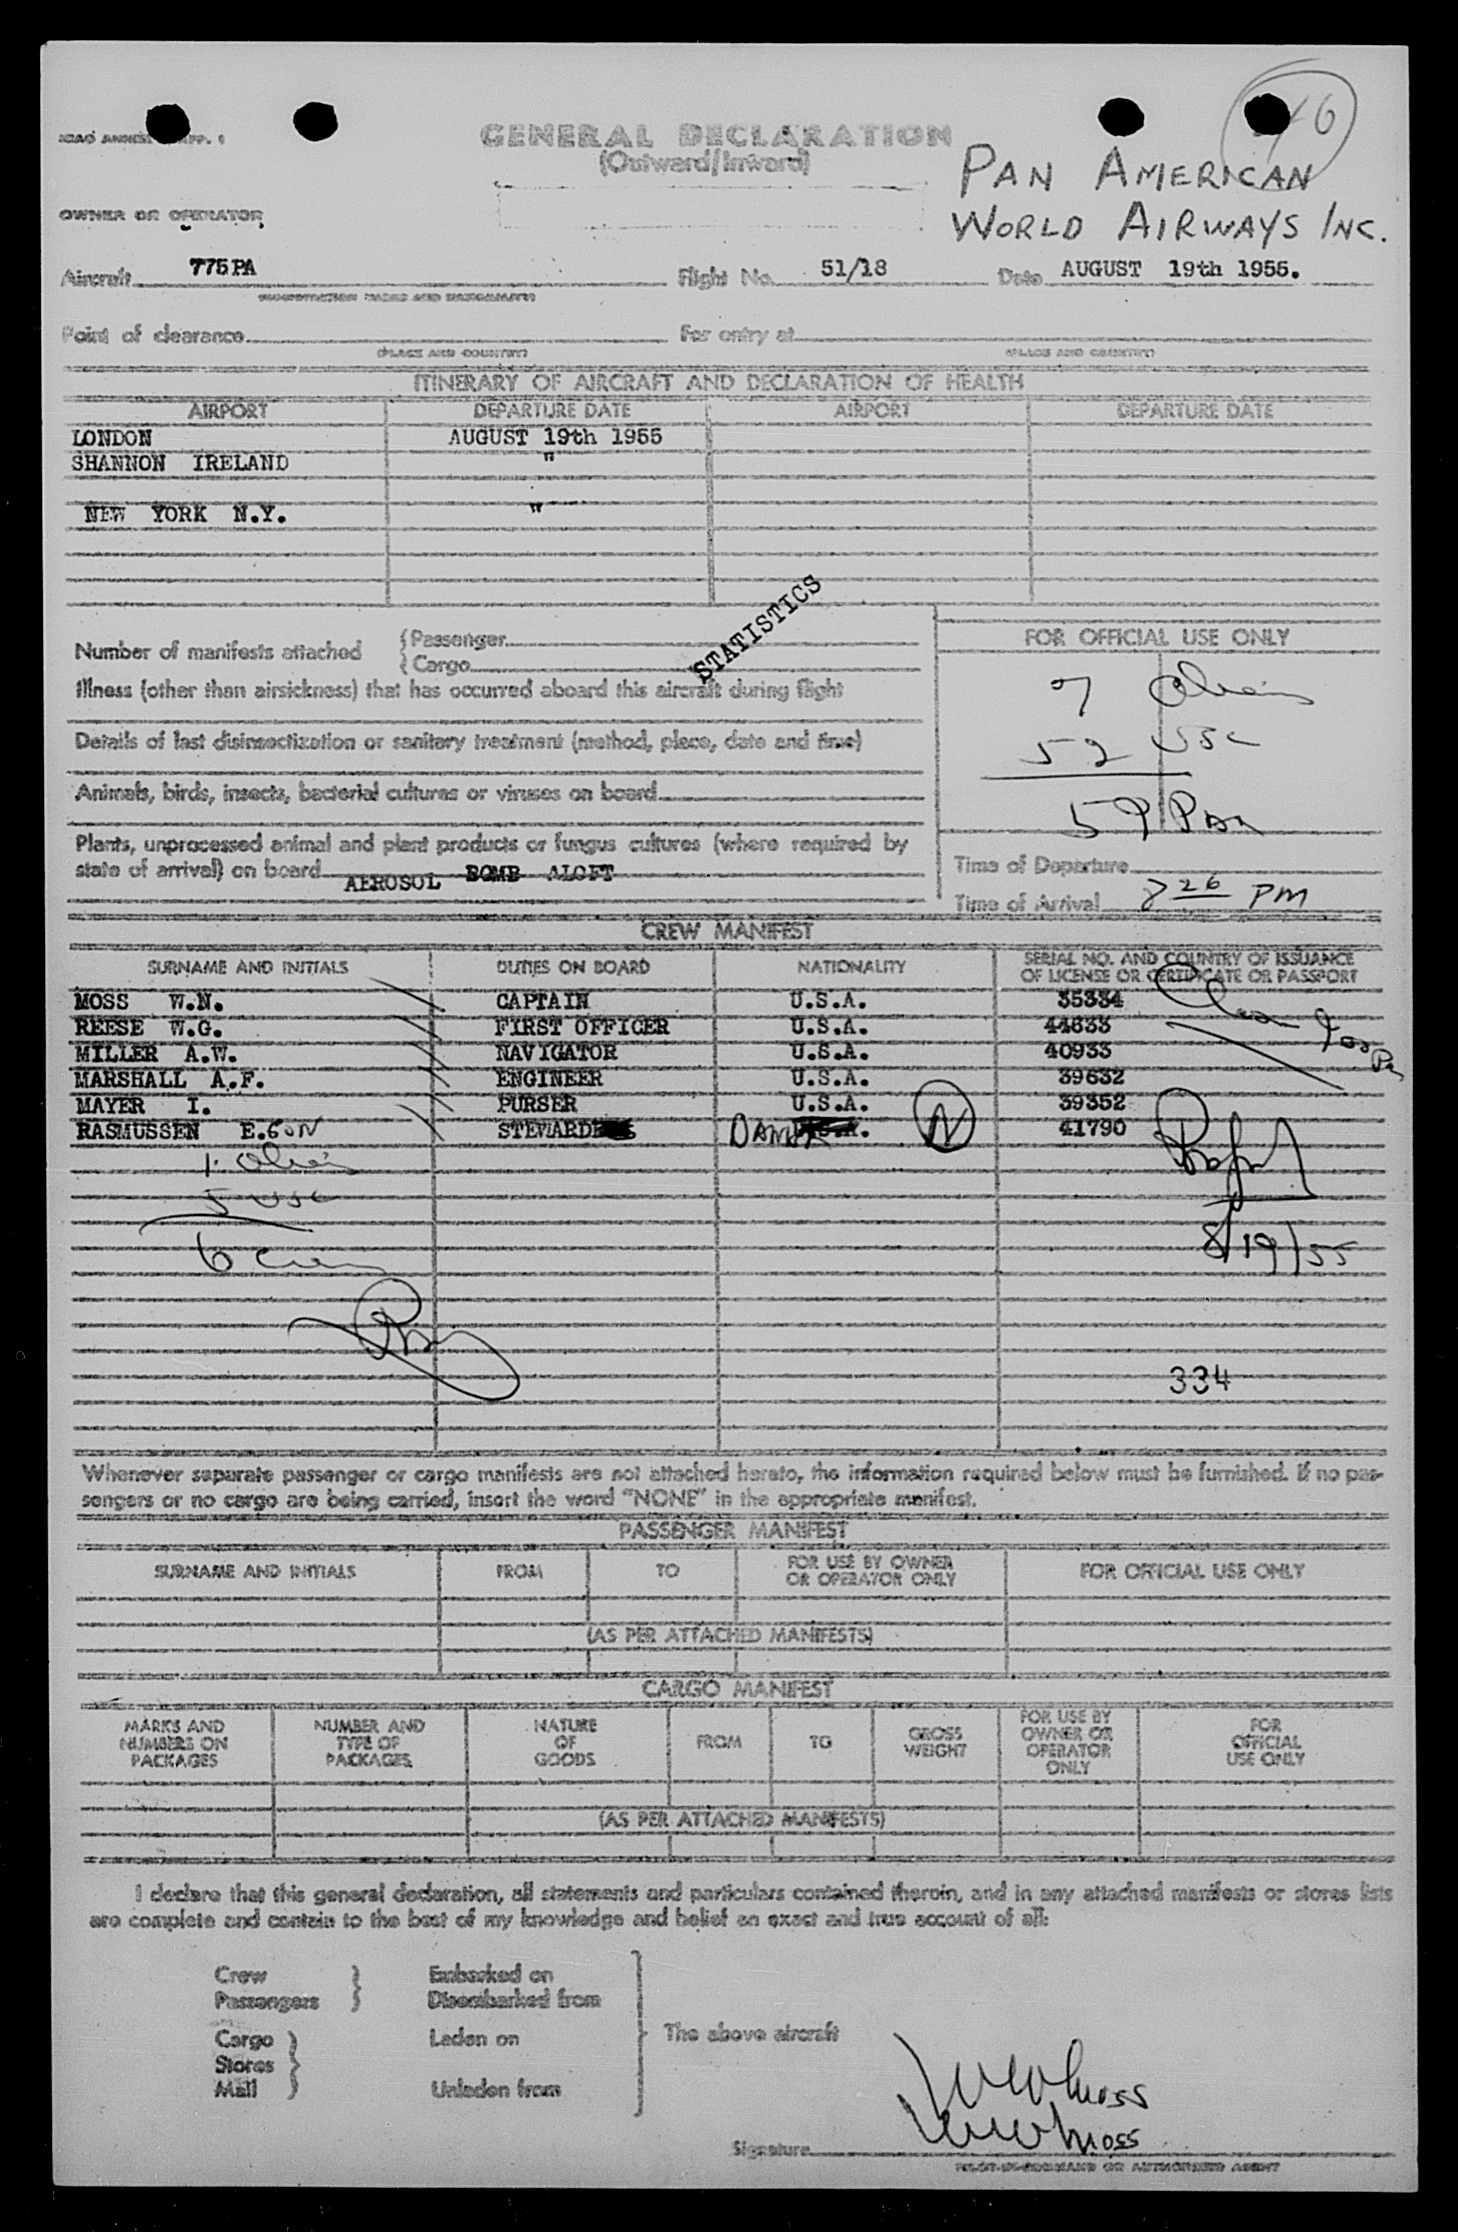 46
GENERAL DECLARATION
(Outward/Inward)
PAN AMERICAN
WORLD AIRWAYS INC.
OWNER OR OPERATOR
Aircraft 775PA Flight No. 51/18 Date AUGUST 19th 1955.
Point of clearance For entry at
(PLACE AND COUNTRY) (PLACE AND COUNTRY)
ITINERARY OF AIRCRAFT AND DECLARATION OF HEALTH
AIRPORT DEPARTURE DATE AIRPORT DEPARTURE DATE
LONDON AUGUST 19th 1955
SHANNON IRELAND "
NEW YORK N.Y. "
STATISTICS
Number of manifests attached { Passenger
{ Cargo
Illness (other than airsickness) that has occurred aboard this aircraft during flight
Details of last disinsectization or sanitary treatment (method, place, date and time)
Animals, birds, insects, bacterial cultures or viruses on board
Plants, unprocessed animal and plant products or fungus cultures (where required by
state of arrival) on board AEROSOL BOMB ALOFT
FOR OFFICIAL USE ONLY
7 Aliens
52 USC
59 Pax
Time of Departure
Time of Arrival 8 26 PM
CREW MANIFEST
SURNAME AND INITIALS DUTIES ON BOARD NATIONALITY SERIAL NO. AND COUNTRY OF ISSUANCE
OF LICENSE OR CERTIFICATE OR PASSPORT
MOSS W.N. CAPTAIN U.S.A. 35334
REESE W.G. FIRST OFFICER U.S.A. 44633
MILLER A.W. NAVIGATOR U.S.A. 40933
MARSHALL A.F. ENGINEER U.S.A. 39632
MAYER I. PURSER U.S.A. 39352
RASMUSSEN E.GON STEWARD DANISH N 41790
1. Alien
5 USC
6 Crew
8/19/55
334
Whenever separate passenger or cargo manifests are not attached hereto, the information required below must be furnished. If no pas-
sengers or no cargo are being carried, insert the word "NONE" in the appropriate manifest.
PASSENGER MANIFEST
SURNAME AND INITIALS FROM TO FOR USE BY OWNER
OR OPERATOR ONLY FOR OFFICIAL USE ONLY
(AS PER ATTACHED MANIFESTS)
CARGO MANIFEST
MARKS AND
NUMBERS ON
PACKAGES
NUMBER AND
TYPE OF
PACKAGES
NATURE
OF
GOODS
FROM
TO
GROSS
WEIGHT
FOR USE BY
OWNER OR
OPERATOR
ONLY
FOR
OFFICIAL
USE ONLY
(AS PER ATTACHED MANIFESTS)
I declare that this general declaration, all statements and particulars contained therein, and in any attached manifests or stores lists
are complete and contain to the best of my knowledge and belief an exact and true account of all:
Crew Embarked on
Passengers Disembarked from
Cargo Laden on
Stores
Mail Unladen from
The above aircraft
Moss
Moss
Signature
PILOT-IN-COMMAND OR AUTHORIZED AGENT